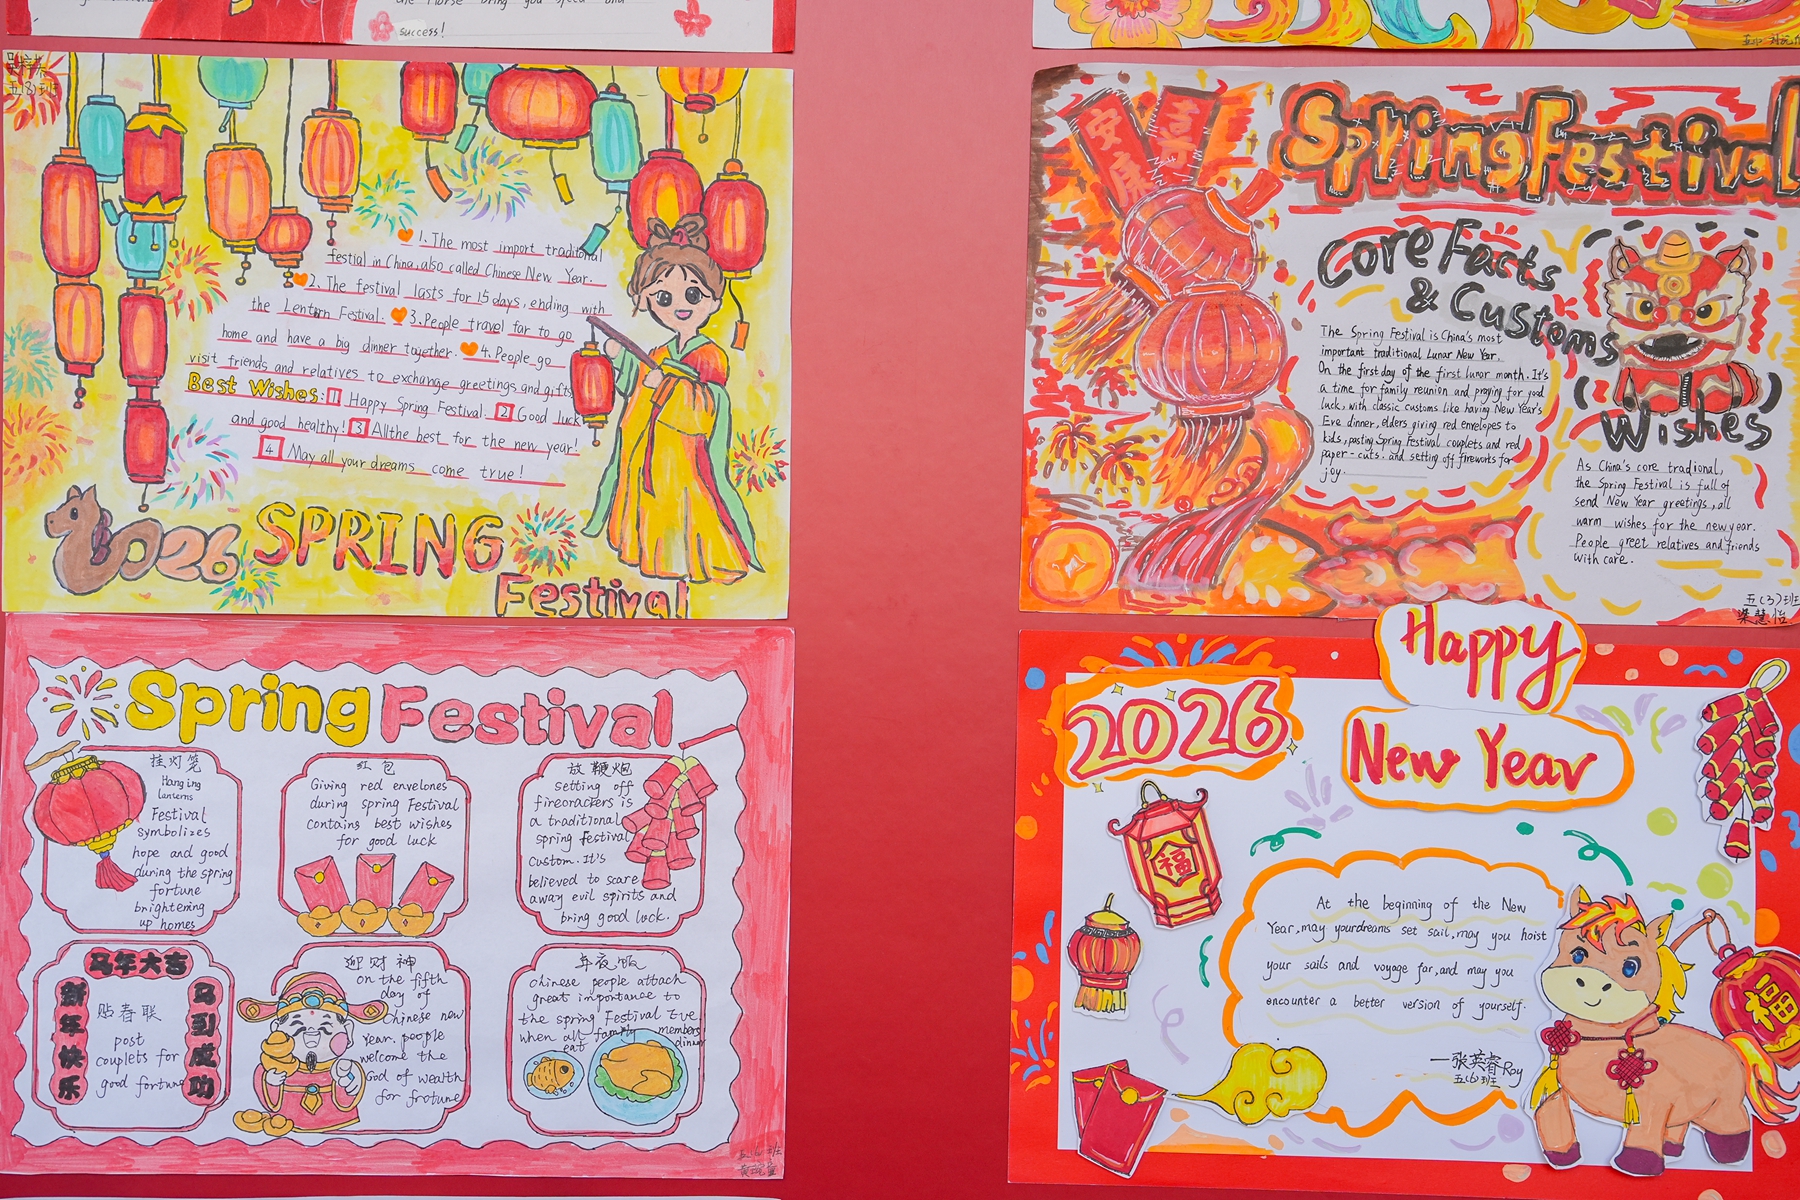 success!
五(8)班
1. The most import traditional
festial in China, also called Chinese New Year.
2. The festival lasts for 15 days, ending with
the Lentern Festival. 3. People travel far to go
home and have a big dinner together. 4. People go
visit friends and relatives to exchange greetings and gifts
Best Wishes: 1 Happy Spring Festival. 2 Good luck
and good healthy! 3 All the best for the new year!
4 May all your dreams come true!
2026 SPRING
Festival
安康
喜
Spring Festival
Core Facts
& Customs
The Spring Festival is China's most
important traditional Lunar New Year.
On the first day of the first lunar month. It's
a time for family reunion and praying for good
luck, with classic customs like having New Year's
Eve dinner, elders giving red envelopes to
kids, pasting Spring Festival couplets and red
paper-cuts. and setting off fireworks for
joy.
Wishes
As China's core tradional,
the Spring Festival is full of
send New Year greetings, all
warm wishes for the new year.
People greet relatives and friends
with care.
五(3)班
梁慧怡
Spring Festival
挂灯笼
Hanging
lanterns
Festival
symbolizes
hope and good
during the spring
fortune
brightening
up homes
红包
Giving red envelones
during spring Festival
contains best wishes
for good luck
放鞭炮
Setting off
fireorackers is
a traditional
spring festival
custom. It's
believed to scare
away evil spirits and
bring good luck.
马年大吉
新年快乐
马到成功
贴春联
post
couplets for
good fortune
迎财神
on the fifth
day of
Chinese new
Year. people
welcome the
God of wealth
for frotune
年夜饭
Chinese people attach
great importance to
the spring Festival Eve
when all family members
eat dinner
Happy
New Year
2026
福
At the beginning of the New
Year, may your dreams set sail, may you hoist
your sails and voyage far, and may you
encounter a better version of yourself.
—张英睿 Roy
五(6)班
福